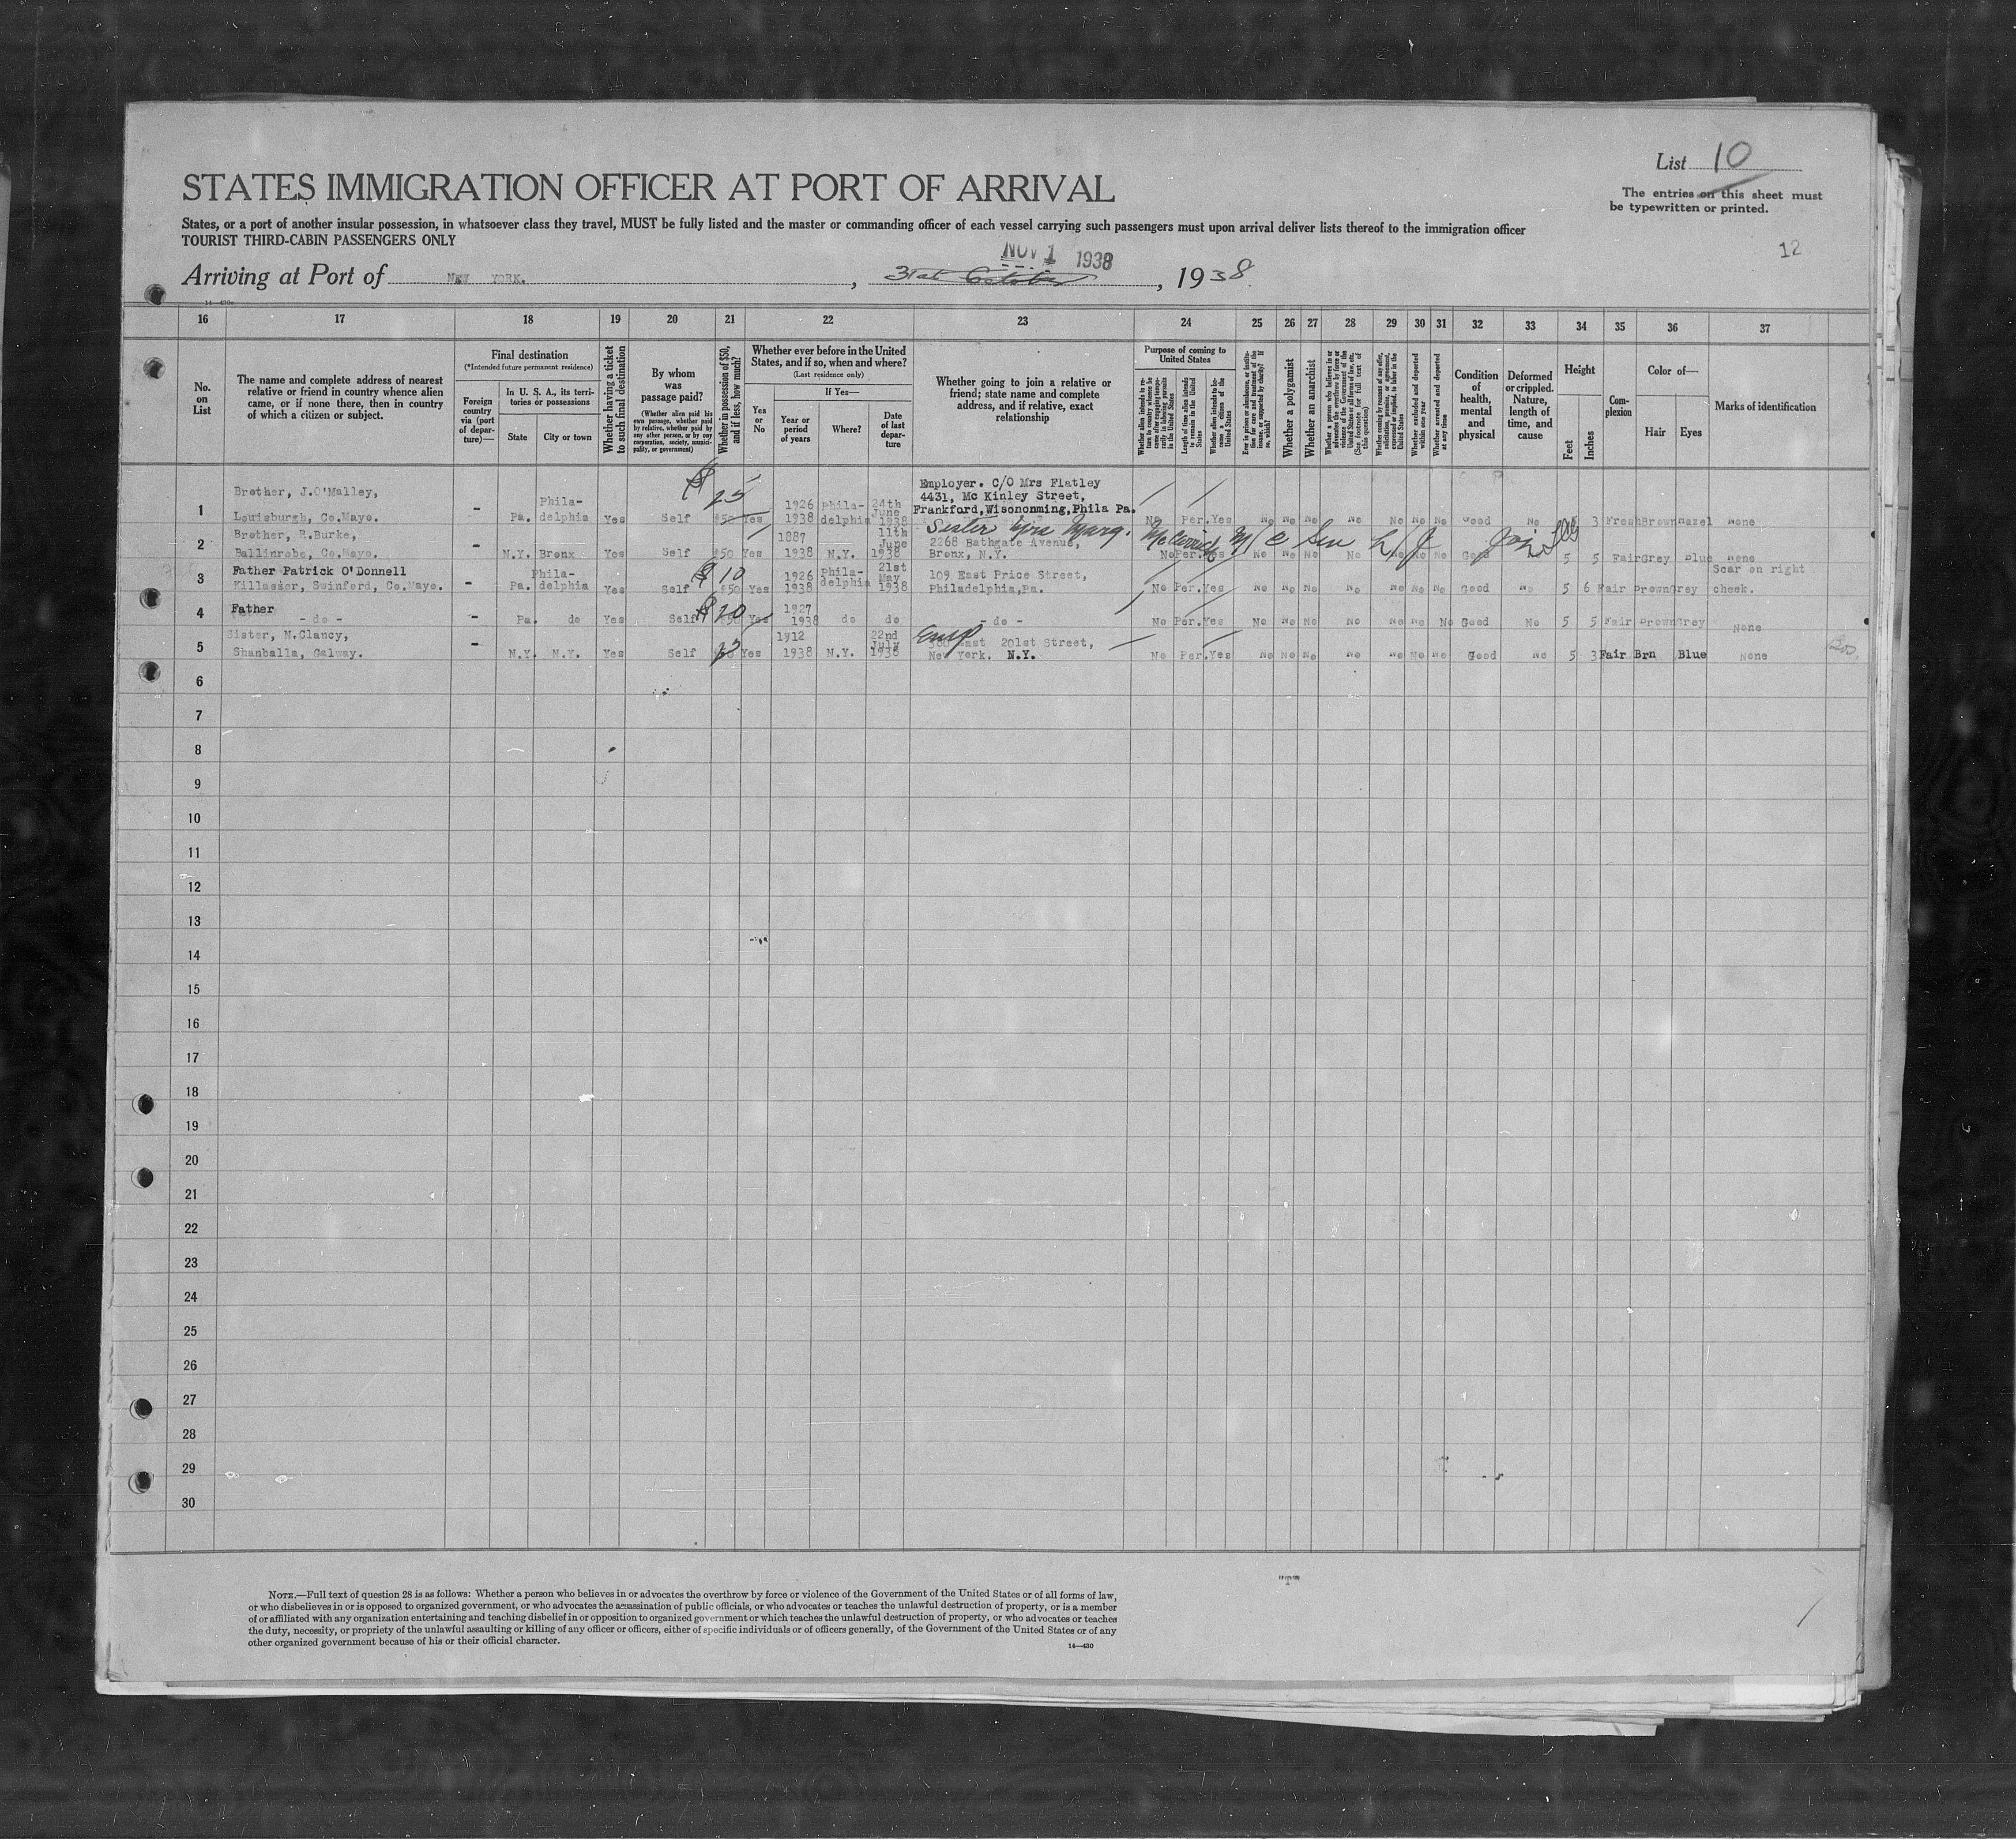 List 10
STATES IMMIGRATION OFFICER AT PORT OF ARRIVAL
The entries on this sheet must
be typewritten or printed.
States, or a port of another insular possession, in whatsoever class they travel, MUST be fully listed and the master or commanding officer of each vessel carrying such passengers must upon arrival deliver lists thereof to the immigration officer
TOURIST THIRD-CABIN PASSENGERS ONLY
12
NOV 1 1938
Arriving at Port of NEW YORK. , 31st October , 1938.
16 17 18 19 20 21 22 23 24 25 26 27 28 29 30 31 32 33 34 35 36 37
No. on List
The name and complete address of nearest
relative or friend in country whence alien
came, or if none there, then in country
of which a citizen or subject.
Final destination
(*Intended future permanent residence)
Foreign country via (port of departure)—
In U. S. A., its territories or possessions
State
City or town
Whether having a ticket to such final destination
By whom was passage paid?
(Whether alien paid his own passage, whether paid by relative, whether paid by any other person, or by any corporation, society, municipality, or government)
Whether in possession of $50, and if less, how much?
Whether ever before in the United States, and if so, when and where?
(Last residence only)
Yes or No
If Yes—
Year or period of years
Where?
Date of last departure
Whether going to join a relative or
friend; state name and complete
address, and if relative, exact
relationship
Purpose of coming to United States
Whether alien intends to return to country whence he came after engaging temporarily in laboring pursuits in the United States
Length of time alien intends to remain in the United States
Whether alien intends to become a citizen of the United States
Ever in prison or almshouse, or institution for care and treatment of the insane, or supported by charity? If so, which?
Whether a polygamist
Whether an anarchist
Whether a person who believes in or advocates the overthrow by force or violence of the Government of the United States or all forms of law, etc. (See footnote for full text of this question)
Whether coming by reasons of any offer, solicitation, promise, or agreement, expressed or implied, to labor in the United States
Whether excluded and deported within one year
Whether arrested and deported at any time
Condition of health, mental and physical
Deformed or crippled. Nature, length of time, and cause
Height
Feet
Inches
Complexion
Color of—
Hair
Eyes
Marks of identification
1 Brother, J.O'Malley, Louisburgh, Co.Mayo. - Pa. Philadelphia Yes Self $ 25 $50 Yes 1926 1938 Philadelphia 24th June 1938 Employer. C/O Mrs Flatley 4431, Mc Kinley Street, Frankford,Wisononming,Phila Pa. No Per. Yes No No No No No No No Good No 5 3 Fresh Brown Hazel None
2 Brother, R.Burke, Ballinrobe, Co.Mayo. - N.Y. Bronx Yes Self $50 Yes 1887 1938 N.Y. 11th June 1938 Sister Mrs Marg. 2268 Bathgate Avenue, Bronx, N.Y. No Per. Yes No No No No No No Good 5 5 Fair Grey Blue None
3 Father Patrick O'Donnell Killasser, Swinford, Co.Mayo. - Pa. Philadelphia Yes Self $ 10 $50 Yes 1926 1938 Philadelphia 21st May 1938 109 East Price Street, Philadelphia,Pa. No Per. Yes No No No No No No No Good No 5 6 Fair Brown Grey Scar on right cheek.
4 Father - do - - Pa. do Yes Self $ 20 $50 Yes 1927 1938 do do - do - No Per. Yes No No No No No No No Good No 5 5 Fair Brown Grey None
5 Sister, N.Clancy, Shanballa, Galway. - N.Y. N.Y. Yes Self Yes 1912 1938 N.Y. 22nd July 1938 Emp East 201st Street, New York. N.Y. No Per. Yes No No No No No No No Good No 5 3 Fair Brn Blue None
6
7
8
9
10
11
12
13
14
15
16
17
18
19
20
21
22
23
24
25
26
27
28
29
30
"T"
NOTE.—Full text of question 28 is as follows: Whether a person who believes in or advocates the overthrow by force or violence of the Government of the United States or of all forms of law,
or who disbelieves in or is opposed to organized government, or who advocates the assassination of public officials, or who advocates or teaches the unlawful destruction of property, or is a member
of or affiliated with any organization entertaining and teaching disbelief in or opposition to organized government or which teaches the unlawful destruction of property, or who advocates or teaches
the duty, necessity, or propriety of the unlawful assaulting or killing of any officer or officers, either of specific individuals or of officers generally, of the Government of the United States or of any
other organized government because of his or their official character.
14—430